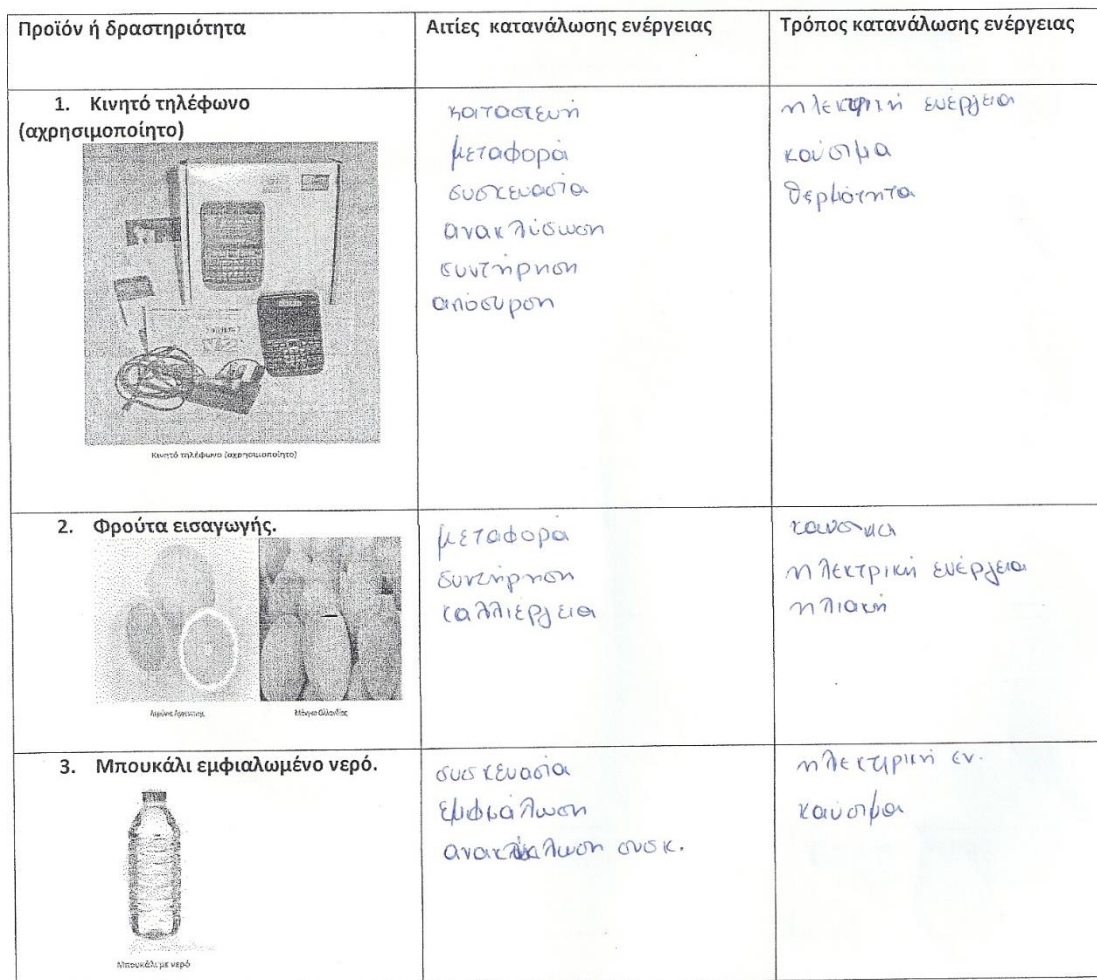 Προϊόν ή δραστηριότητα
Αιτίες κατανάλωσης ενέργειας
Τρόπος κατανάλωσης ενέργειας
1. Κινητό τηλέφωνο
(αχρησιμοποίητο)
Κινητό τηλέφωνο (αχρησιμοποίητο)
κατασκευή
μεταφορά
συσκευασία
ανακλύσωση
συντήρηση
απόσυρση
ηλεκτρική ενέργεια
καύσιμα
θερμότητα
2. Φρούτα εισαγωγής.
Λεμόνια Αργεντινής
Μάνγκο Ολλανδίας
μεταφορά
συντήρηση
καλλιέργεια
καυσιμα
ηλεκτρική ενέργεια
ηλιακή
3. Μπουκάλι εμφιαλωμένο νερό.
Μπουκάλι με νερό
συσκευασία
εμφιάλωση
ανακύκλωση συσκ.
ηλεκτρική εν.
καύσιμα